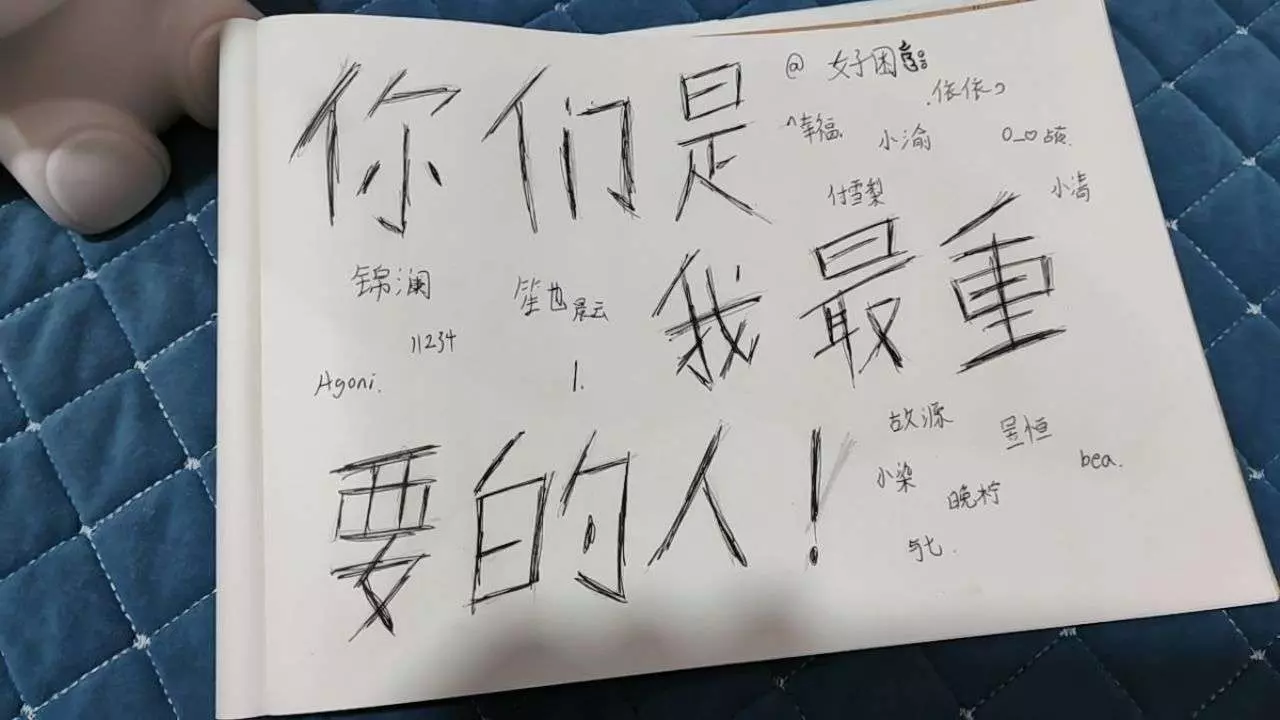 你们是
@ 好困
依依
幸福
小渝
付雪梨
小满
锦澜
笙也
晨云
我最重
11234
Agoni.
1.
要的人！
故源
昱恒
小染
晚柠
bea.
与七.